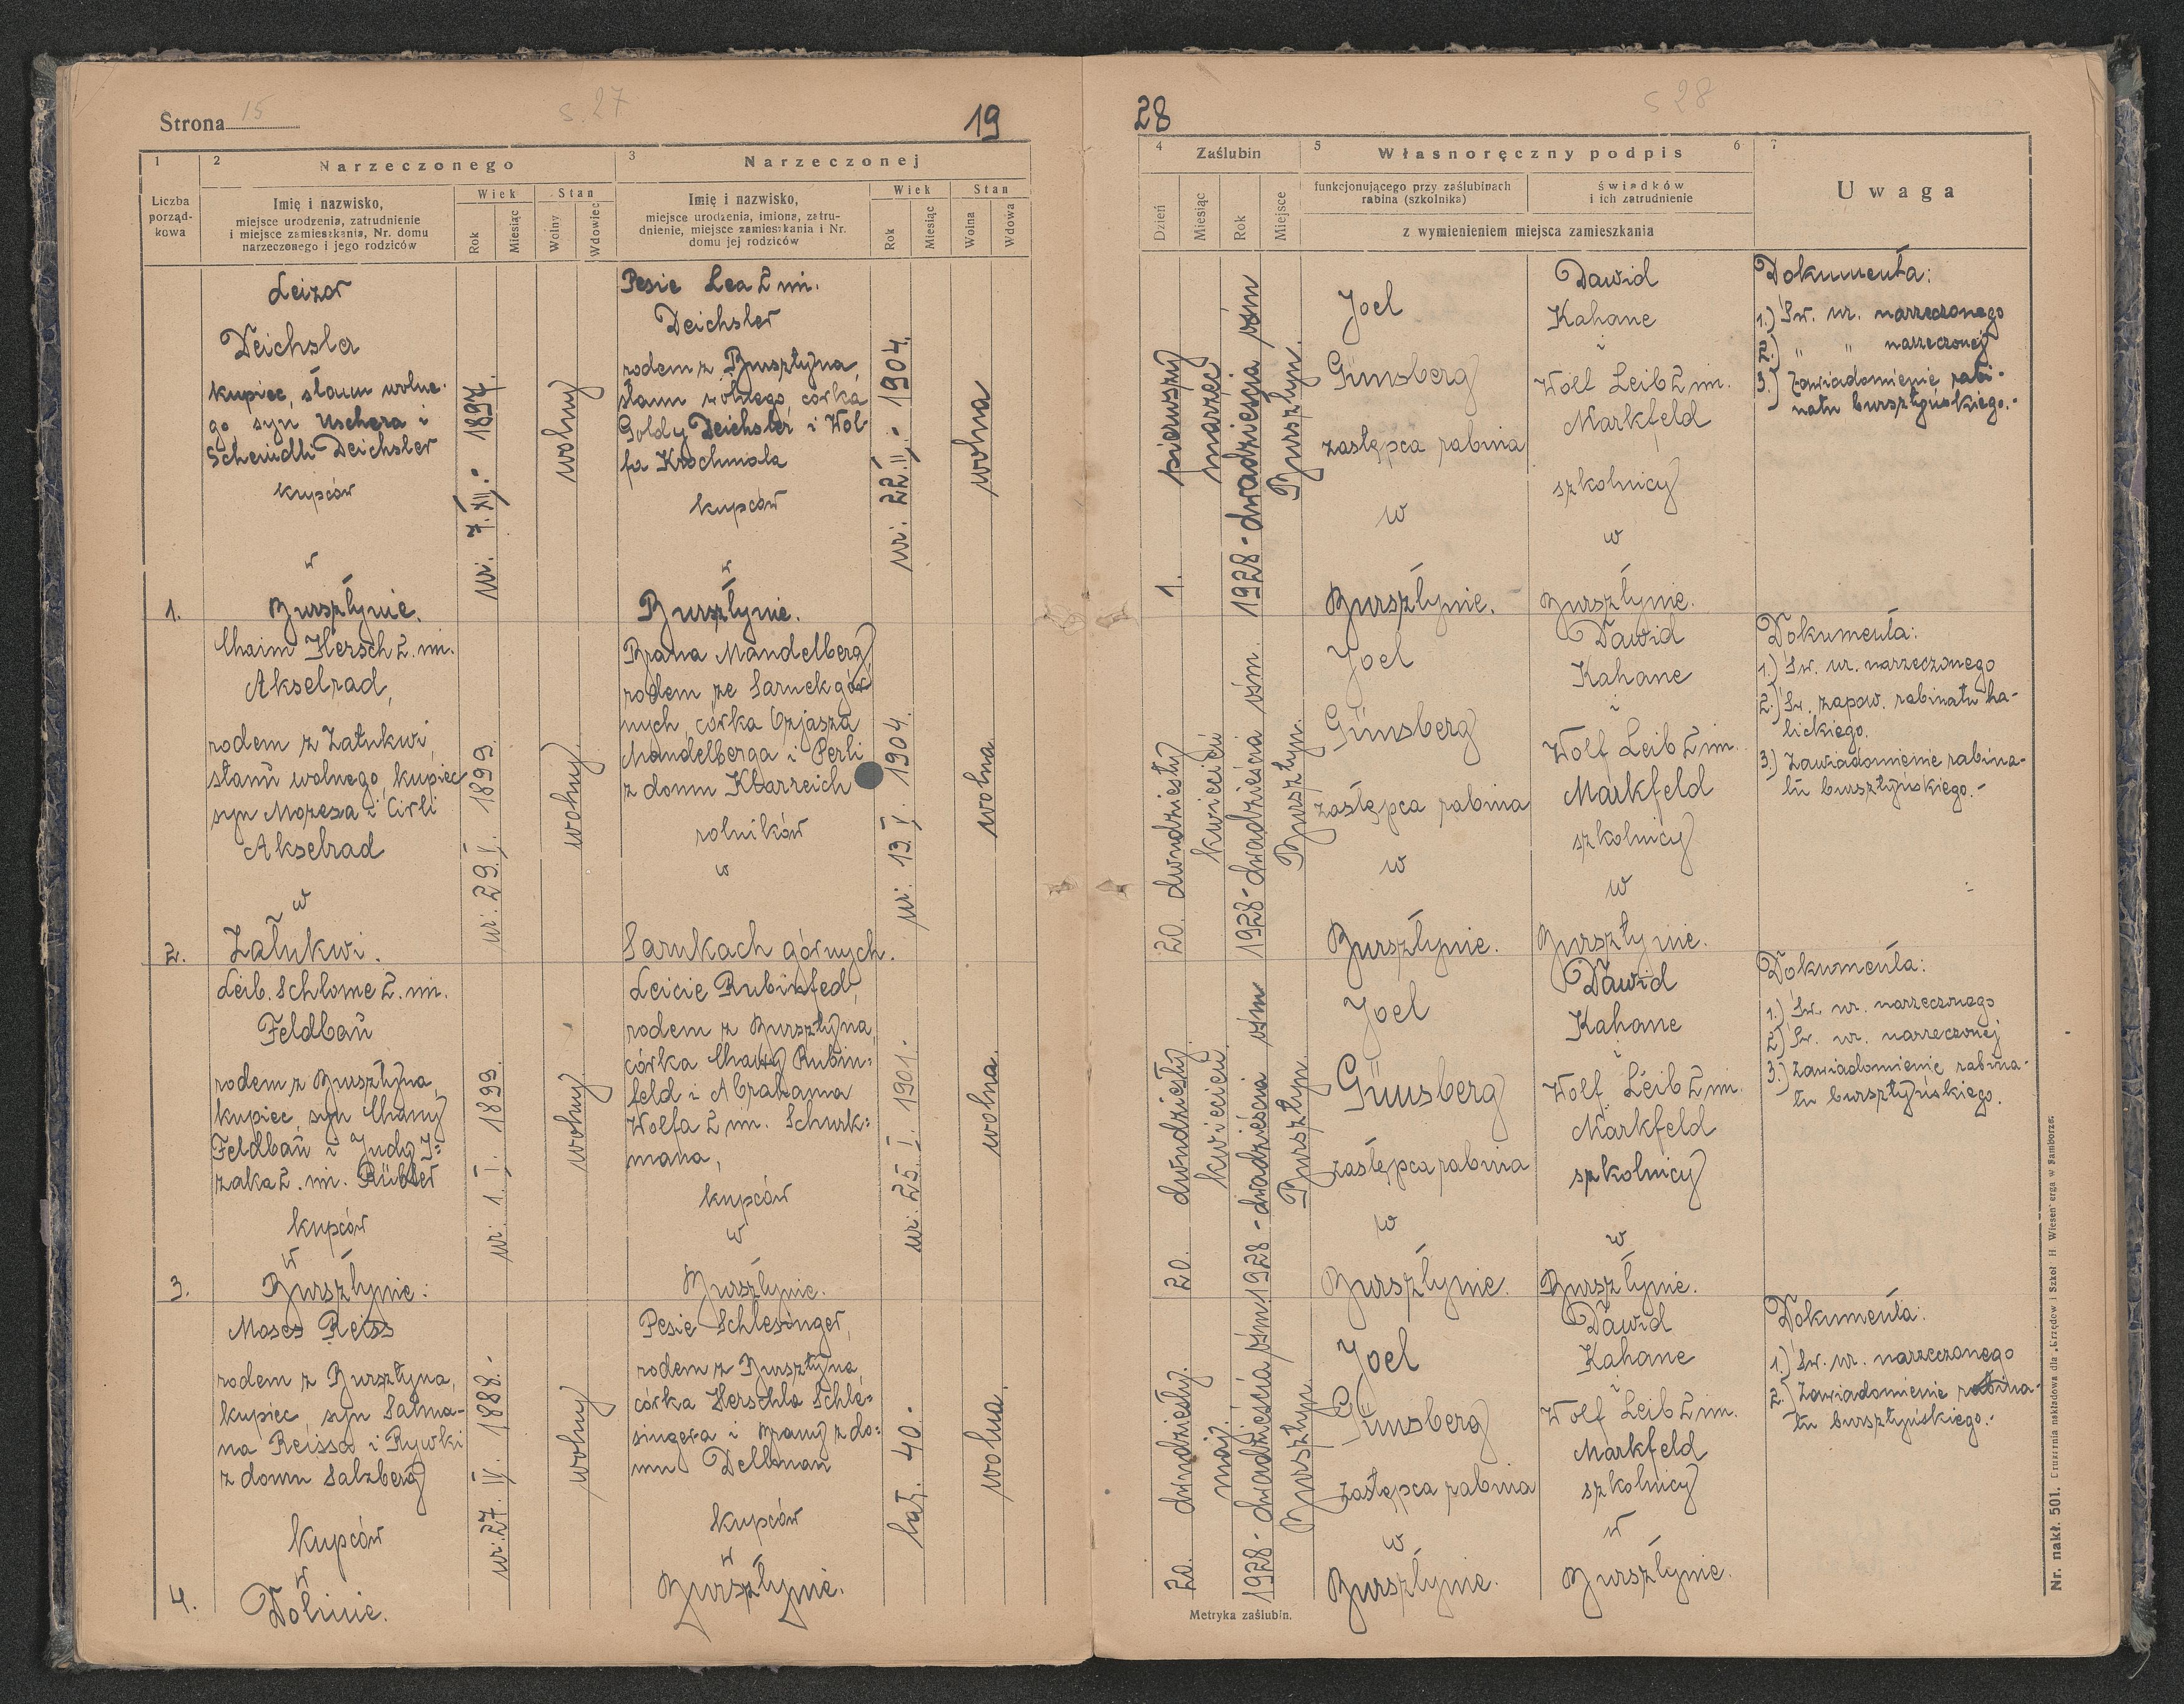 Strona 15
s. 27
19
1
2
Narzeczonego
3
Narzeczonej
Liczba porząd-kowa
Imię i nazwisko,
miejsce urodzenia, zatrudnienie
i miejsce zamieszkania, Nr. domu
narzeczonego i jego rodziców
Wiek
Rok
Miesiąc
Stan
Wolny
Wdowiec
Imię i nazwisko,
miejsce urodzenia, imiona, zatru-
dnienie, miejsce zamieszkania i Nr.
domu jej rodziców
Wiek
Rok
Miesiąc
Stan
Wolna
Wdowa
1.
Leizor
Deichsler
kupiec, stanu wolne-
go, syn Uschera i
Scheindli Deichsler
kupców
w
Bursztynie.
ur: 7.XII. 1897.
wolny
Pesie Lea 2 im.
Deichsler
rodem z Bursztyna,
stanu wolnego, córka
Goldy Deichsler i Wol-
fa Krochmala
kupców
w
Bursztynie.
ur: 22.II. 1904.
wolna
2.
Chaim Hersch 2. im.
Akselrad,
rodem z Załukwi,
stanu wolnego, kupiec
syn Mozesa i Cirli
Akselrad
w
Załukwi.
ur: 29.I. 1899.
wolny
Brana Mandelberg
rodem ze Sarnek gór
nych, córka Ozjasza
Mandelberga i Perli
z domu Klarreich
rolników
w
Sarnkach górnych.
ur: 13.I. 1904.
wolna
3.
Leib. Schlome 2. im.
Feldbau
rodem z Bursztyna,
kupiec, syn Chany
Feldbau i Judy I=
zaka 2. im. Rübler
kupców
w
Bursztynie:
ur: 1. I. 1899.
wolny
Leicie Rubinfed,
rodem z Bursztyna,
córka Chawy Rubin=
feld i Abrahama
Wolfa 2 im. Schurk=
mana,
kupców
w
Bursztynie.
ur: 25. I. 1901.
wolna.
4.
Moses Reiss
rodem z Bursztyna,
kupiec, syn Salma-
na Reissa i Rywki
z domu Salzberg
kupców
w
Dolinie.
ur: 27. IV. 1888.-
wolny
Pesie Schlesinger,
rodem z Bursztyna,
córka Herschla Schle=
singera i Brany z do=
mu Dellman
kupców
w
Bursztynie.
lat. 40.-
wolna.
28
s 28
4
Zaślubin
5
Własnoręczny podpis
6
7
Dzień
Miesiąc
Rok
Miejsce
funkcjonującego przy zaślubinach
rabina (szkolnika)
świadków
i ich zatrudnienie
z wymienieniem miejsca zamieszkania
Uwaga
1. pierwszy
marzec
1928 - dwadzieścia ośm
Bursztyn.
Joel
Günsberg
zastępca rabina
w
Bursztynie.
Dawid
Kahane
i
Wolf Leib 2 im.
Markfeld
szkolnicy
w
Bursztynie.
Dokumenta:
1.) Św. ur. narzeczonego
2.) " " narzeczonej
3.) Zawiadomienie rabi-
natu bursztyńskiego.-
20. dwudziesty
kwiecień
1928 - dwadzieścia ośm.
Bursztyn.
Joel
Günsberg
zastępca rabina
w
Bursztynie.
Dawid
Kahane
i
Wolf Leib 2 im.
Markfeld
szkolnicy
w
Bursztynie.
Dokumenta:
1.) Św. ur. narzeczonego
2.) Św. zapow. rabinatu ha-
lickiego.
3.) Zawiadomienie rabina-
tu bursztyńskiego.-
20. dwudziesty.
kwiecień
1928 - dwadzieścia ośm
Bursztyn
Joel
Günsberg
zastępca rabina
w
Bursztynie.
Dawid
Kahane
i
Wolf Leib 2 im.
Markfeld
szkolnicy
w
Bursztynie.
Dokumenta:
1.) Św. ur. narzeczonego
2.) Św. ur. narzeczonej
3.) Zawiadomienie rabina-
tu bursztyńskiego.
20. dwudziesty.
maj.
1928 - dwadzieścia ośm.
Bursztyn.
Joel
Günsberg
zastępca rabina
w
Bursztynie.
Dawid
Kahane
i
Wolf Leib 2 im.
Markfeld
szkolnicy
w
Bursztynie.
Dokumenta:
1.) Św. ur. narzeczonego
2.) Zawiadomienie rabina-
tu bursztyńskiego.-
Metryka zaślubin.
Nr. nakł. 501. Drukarnia nakładowa dla Urzędów i Szkół H. Wiesenberga w Samborze.